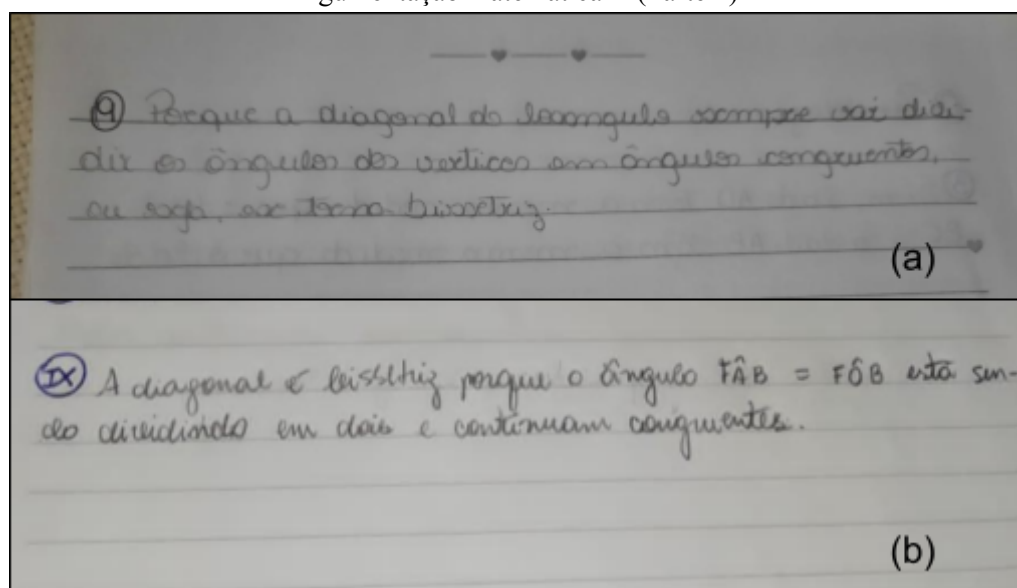 9 Porque a diagonal do losangulo sempre vai divi-
dir os ângulos dos vertices em ângulos congruentes,
ou seja, se torna bissetriz.
(a)
IX A diagonal é bissetriz porque o ângulo FÂB = FÔB está sen-
do dividindo em dois e continuam congruentes.
(b)